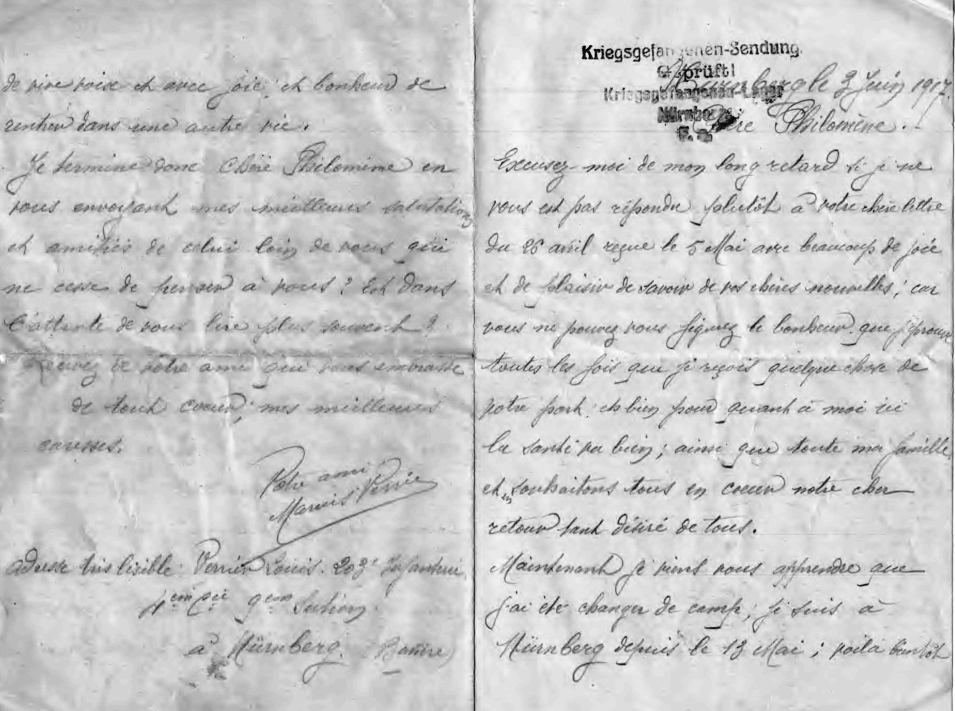 Kriegsgefangenen-Sendung.
Geprüft!
Kriegsgefangenen-Lager
Nürnberg
Nürnberg le 3 Juin 1917.
Chère Philomène.
Excusez-moi de mon long retard si je ne
vous est pas répondu plutôt à votre chère lettre
du 25 avril reçue le 5 Mai avec beaucoup de joie
et de plaisir de savoir de vos chères nouvelles; car
vous ne pouvez vous figurez le bonheur que j'éprouve
toutes les fois que je reçois quelque chose de
votre part. eh bien pour quant à moi ici
la santé va bien; ainsi que toute ma famille,
et souhaitons tous en coeur notre cher
retour tant désiré de tous.
Maintenant je viens vous apprendre que
j'ai été changer de camp; je suis à
Nürnberg depuis le 13 Mai; voilà bientôt
de vive voix et avec joie; et bonheur de
rentrer dans une autre vie.
Je termine donc Chère Philomène en
vous envoyant mes meilleures salutations
et amitiés de celui loin de vous qui
ne cesse de penser à vous? Est dans
l'attente de vous lire plus souvent?
Recevez de votre ami qui vous embrasse
de tout coeur; mes meilleures
caresses.
Votre ami
Verrier
adresse très lisible: Verrier Louis. 203e Infanterie
4em Cie 9em Section
à Nürnberg (Bavière)